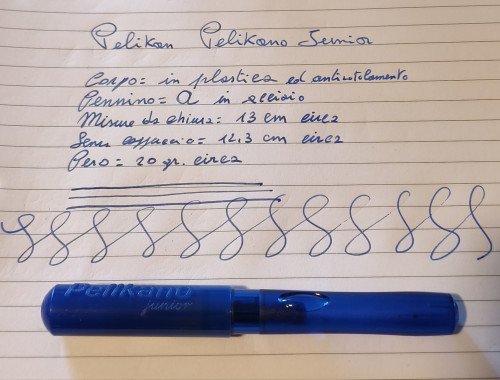 Pelikan Pelikano Junior
Corpo = in plastica ed antirotolamento
Pennino = A in acciaio
Misure da chiusa = 13 cm circa
Senza cappuccio = 12,3 cm circa
Peso = 20 gr. circa
Pelikano
junior